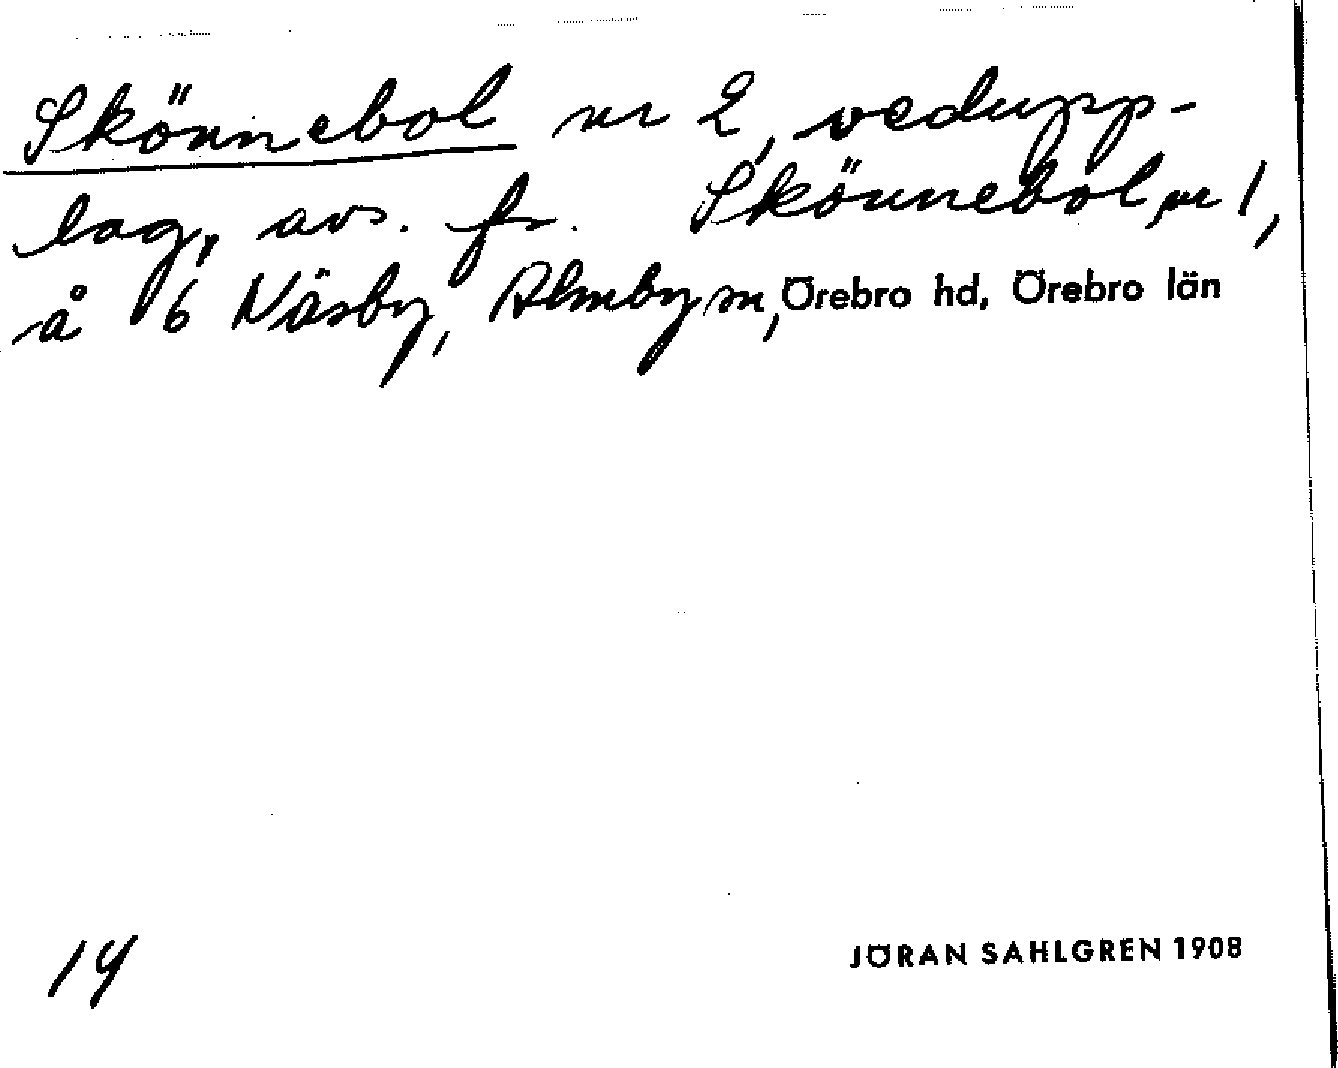 Skönnebol nr 2, vedupp-
lag, avs. fr. Skönnebol, nr 1,
å 6 Näsby, Almby sn, Örebro hd, Örebro län
14
JÖRAN SAHLGREN 1908